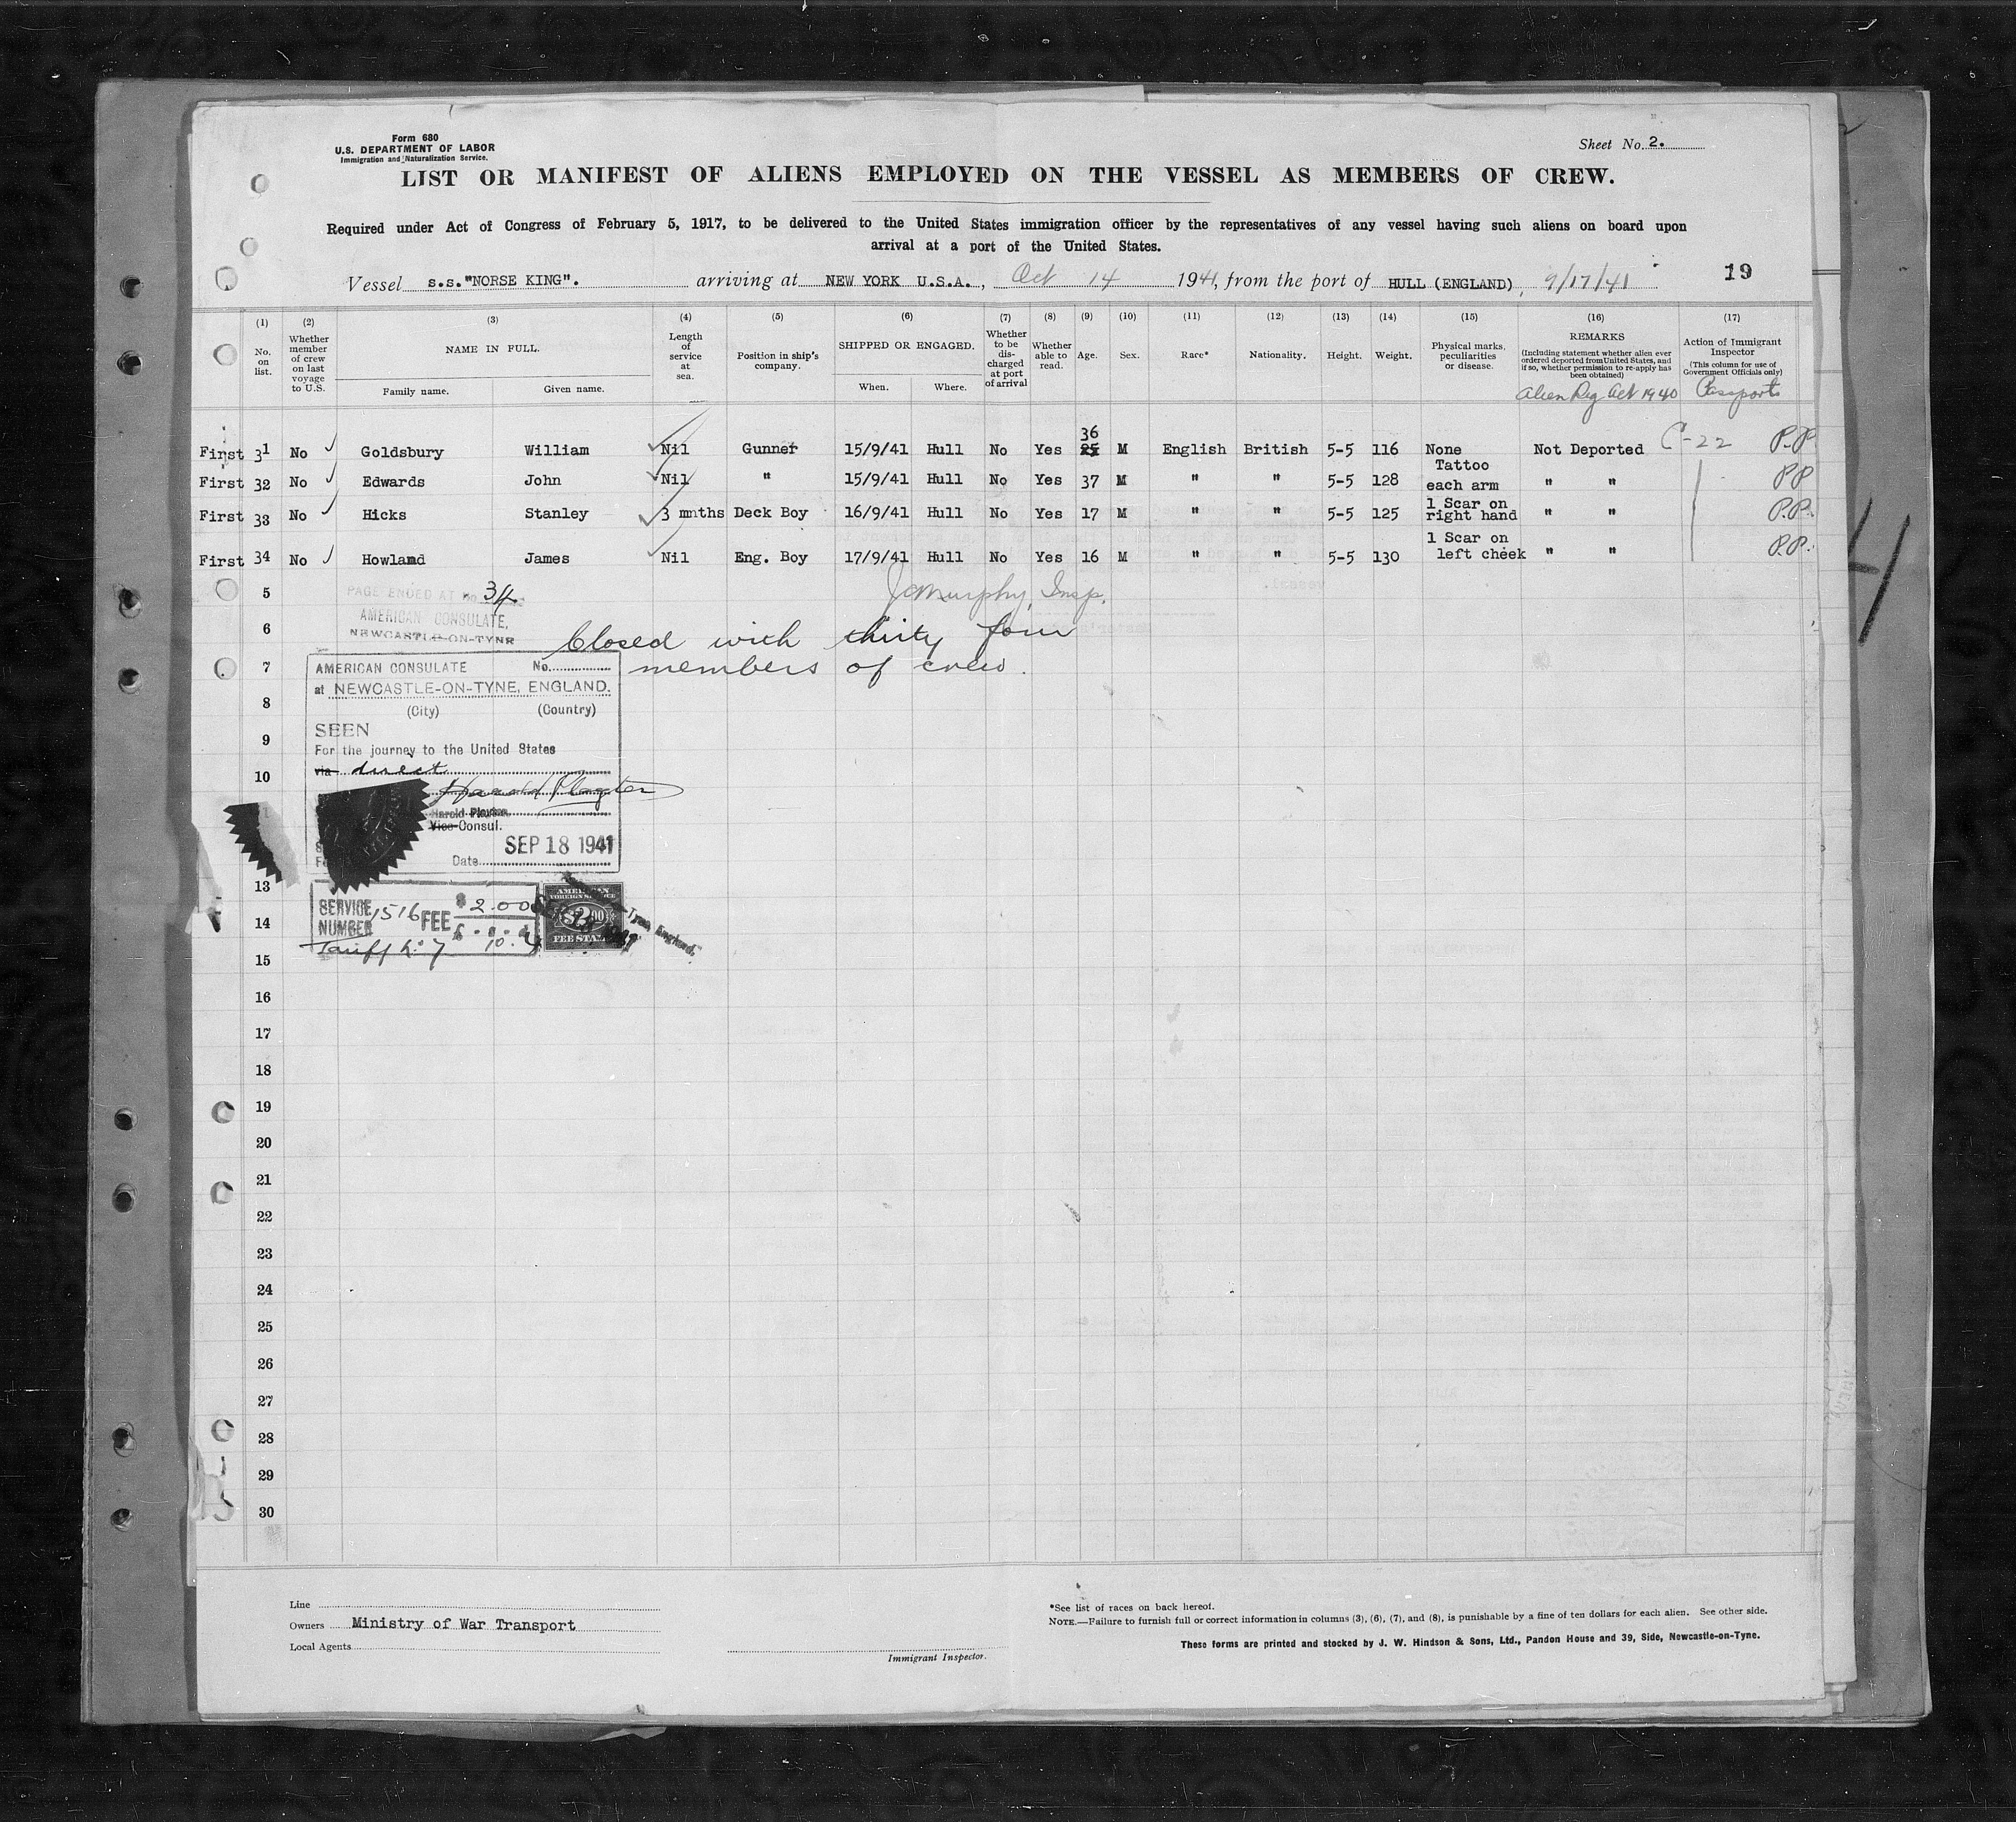 Form 680
U.S. DEPARTMENT OF LABOR
Immigration and Naturalization Service.
Sheet No. 2.
LIST OR MANIFEST OF ALIENS EMPLOYED ON THE VESSEL AS MEMBERS OF CREW.
Required under Act of Congress of February 5, 1917, to be delivered to the United States immigration officer by the representatives of any vessel having such aliens on board upon
arrival at a port of the United States.
Vessel s.s."NORSE KING". arriving at NEW YORK U.S.A., Oct 14 1941, from the port of HULL (ENGLAND), 9/17/41 19
(1) (2) (3) (4) (5) (6) (7) (8) (9) (10) (11) (12) (13) (14) (15) (16) (17)
No. on list. Whether member of crew on last voyage to U.S. NAME IN FULL. Family name. Given name. Length of service at sea. Position in ship's company. SHIPPED OR ENGAGED. When. Where. Whether to be discharged at port of arrival Whether able to read. Age. Sex. Race* Nationality. Height. Weight. Physical marks, peculiarities or disease. REMARKS (Including statement whether alien ever ordered deported from United States, and if so, whether permission to re-apply has been obtained) Action of Immigrant Inspector (This column for use of Government Officials only)
Alien Reg Act 1940 Passports
36
First 31 No Goldsbury William Nil Gunner 15/9/41 Hull No Yes 25 M English British 5-5 116 None Not Deported C-22 P.P.
First 32 No Edwards John Nil " 15/9/41 Hull No Yes 37 M " " 5-5 128 Tattoo each arm " " PP
First 33 No Hicks Stanley 3 mnths Deck Boy 16/9/41 Hull No Yes 17 M " " 5-5 125 1 Scar on right hand " " P.P.
First 34 No Howland James Nil Eng. Boy 17/9/41 Hull No Yes 16 M " " 5-5 130 1 Scar on left cheek " " P.P.
5 PAGE ENDED AT No. 34 JCMurphy, Insp.
AMERICAN CONSULATE,
6 NEWCASTLE-ON-TYNE Closed with thirty four
7 members of crew.
AMERICAN CONSULATE No.
at NEWCASTLE-ON-TYNE, ENGLAND.
8 (City) (Country)
SEEN
9 For the journey to the United States
via direct
10 Harold Playter
Harold Playter
Vice-Consul.
Date SEP 18 1941
13
SERVICE NUMBER 1516 FEE $ 2.00
14 £ . s . d
Tariff No 7 10.4
AMERICAN FOREIGN SERVICE $2.00 FEE STAMP
Tyne, England.
15
16
17
18
19
20
21
22
23
24
25
26
27
28
29
30
Line
Owners Ministry of War Transport
Local Agents
Immigrant Inspector.
*See list of races on back hereof.
NOTE.—Failure to furnish full or correct information in columns (3), (6), (7), and (8), is punishable by a fine of ten dollars for each alien. See other side.
These forms are printed and stocked by J. W. Hindson & Sons, Ltd., Pandon House and 39, Side, Newcastle-on-Tyne.